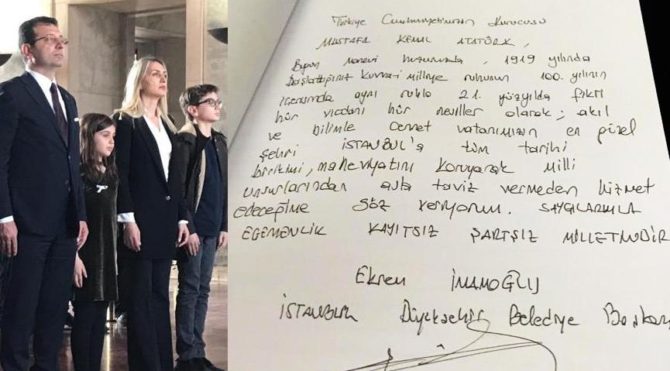 Türkiye Cumhuriyetimizin Kurucusu
MUSTAFA KEMAL ATATÜRK,
Bugün Manevi huzurunuzda, 1919 yılında
başlattığınız Kuvva-i Milliye ruhunun 100. yılının
içerisinde aynı ruhla 21. yüzyılda fikri
hür vicdanı hür nesiller olarak; akıl
ve bilimle Cennet vatanımızın en güzel
şehri İSTANBUL'a tüm tarihi
birikimi, maneviyatını koruyarak Milli
unsurlarından asla taviz vermeden hizmet
edeceğime söz veriyorum. SAYGILARIMLA
EGEMENLİK KAYITSIZ ŞARTSIZ MİLLETİNDİR
Ekrem İMAMOĞLU
İSTANBUL Büyükşehir Belediye Başkanı